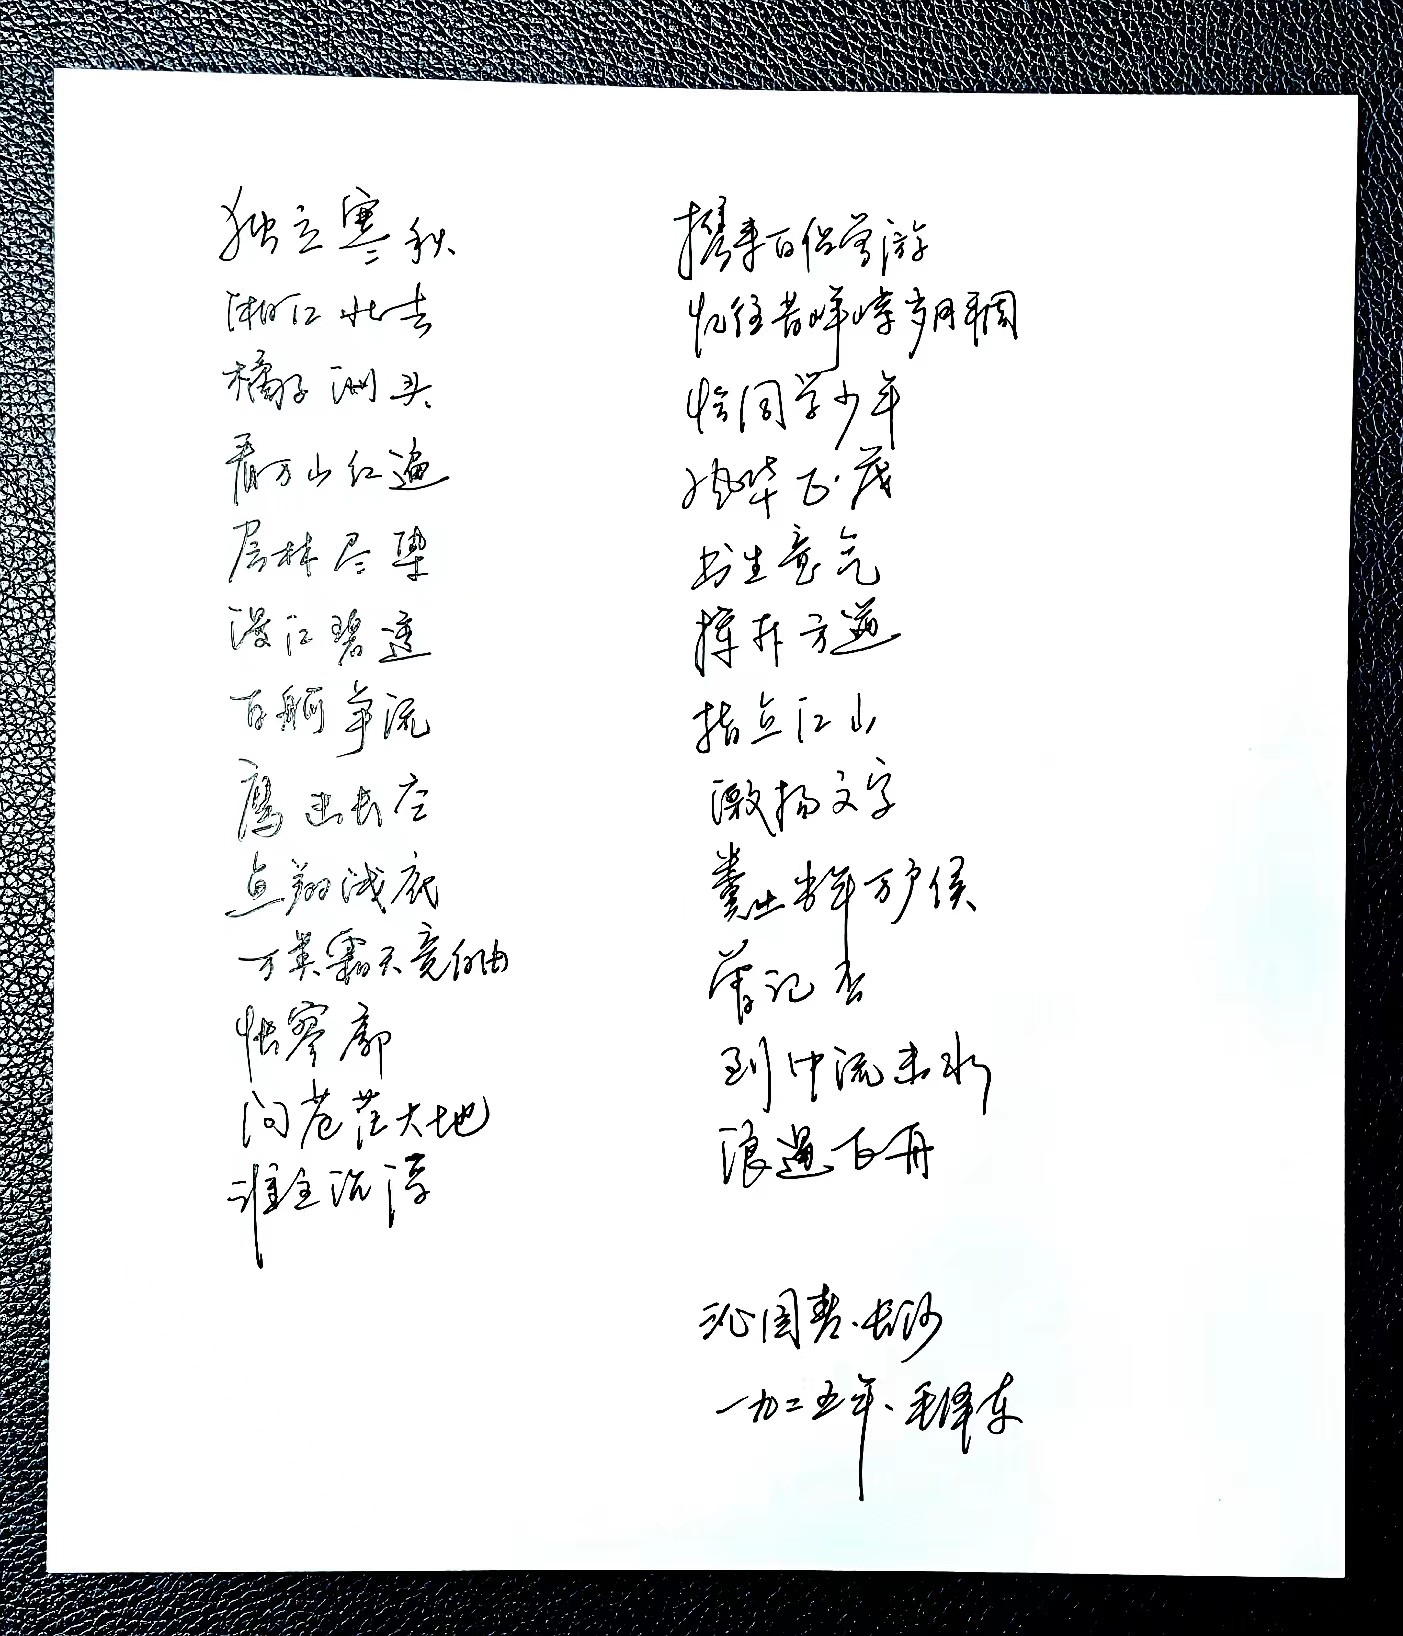 独立寒秋
湘江北去
橘子洲头
看万山红遍
层林尽染
漫江碧透
百舸争流
鹰击长空
鱼翔浅底
万类霜天竞自由
怅寥廓
问苍茫大地
谁主沉浮
携来百侣曾游
忆往昔峥嵘岁月稠
恰同学少年
风华正茂
书生意气
挥斥方遒
指点江山
激扬文字
粪土当年万户侯
曾记否
到中流击水
浪遏百舟
沁园春·长沙
一九二五年、毛泽东